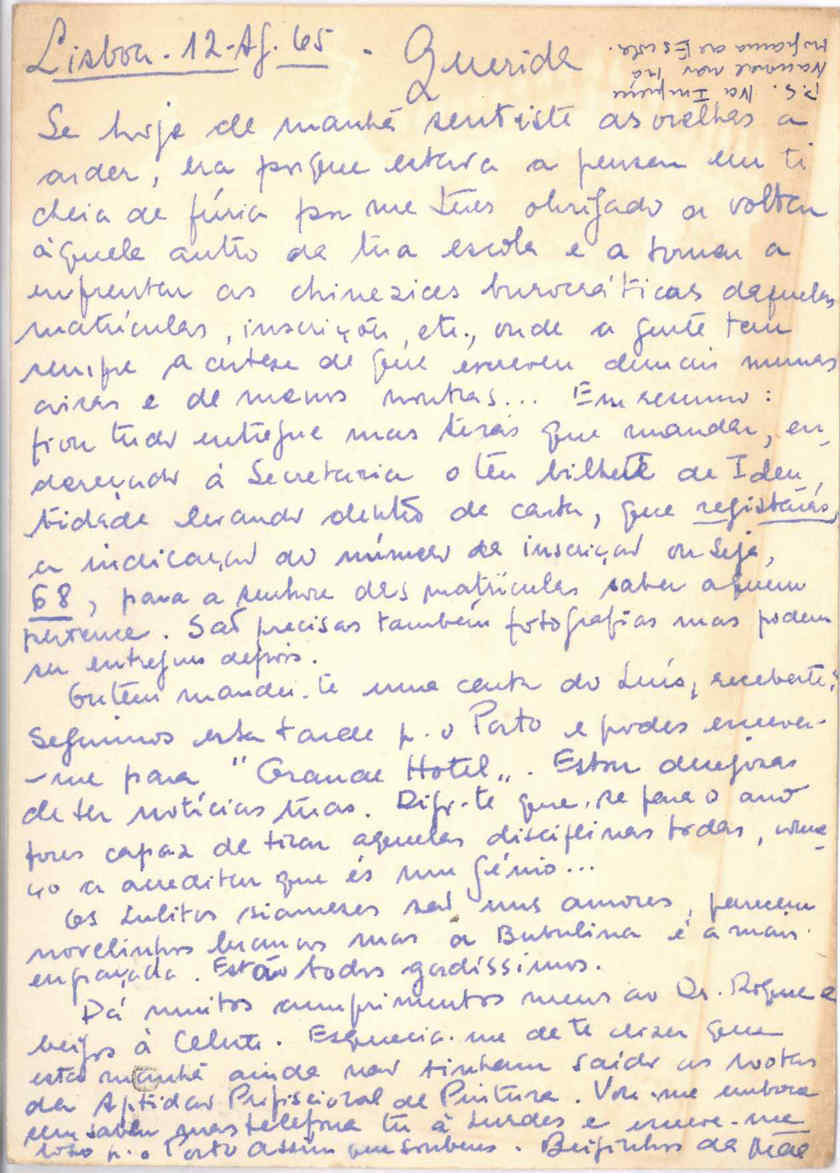 Lisboa - 12-Ag. 65 - Querida
Se hoje de manhã sentiste as orelhas a
arder, era porque estava a pensar em ti
cheia de fúria por me teres obrigado a voltar
àquele antro da tua escola e a tornar a
enfrentar as chinezices burocráticas daquelas
matrículas, inscrições, etc., onde a gente tem
sempre a certeza de que escreveu demais numas
coisas e de menos noutras... Em resumo:
ficou tudo entregue mas terás que mandar, en-
dereçado à Secretaria o teu bilhete de Iden-
tidade levando dentro da carta, que registarás,
a indicação do número da inscrição ou seja,
68, para a senhora das matrículas saber a quem
pertence. São precisas também fotografias mas podem
ser entregues depois.
Ontem mandei-te uma carta do Luís, recebeste?
Seguimos esta tarde p. o Porto e podes escrever-
-me para "Grande Hotel". Estou desejosa
de ter notícias tuas. Digo-te que, se para o ano
fores capaz de tirar aquelas disciplinas todas, come-
ço a acreditar que és um génio...
Os Lulitos siameses são uns amores, parecem
novelinhos brancos mas a Bubulina é a mais
engraçada. Estão todos gordíssimos.
Dá muitos cumprimentos meus ao Dr. Roque e
beijos à Celeste. Esquecia-me de te dizer que
esta manhã ainda não tinham saído as notas
da Aptidão Profissional de Pintura. Vou-me embora
sem saber mas telefona tu à Lurdes e escreve-me
logo p. o Porto assim que souberes. Beijinhos da Mãe
P.S. Na Imprensa
Nacional não há
programa da Escola.